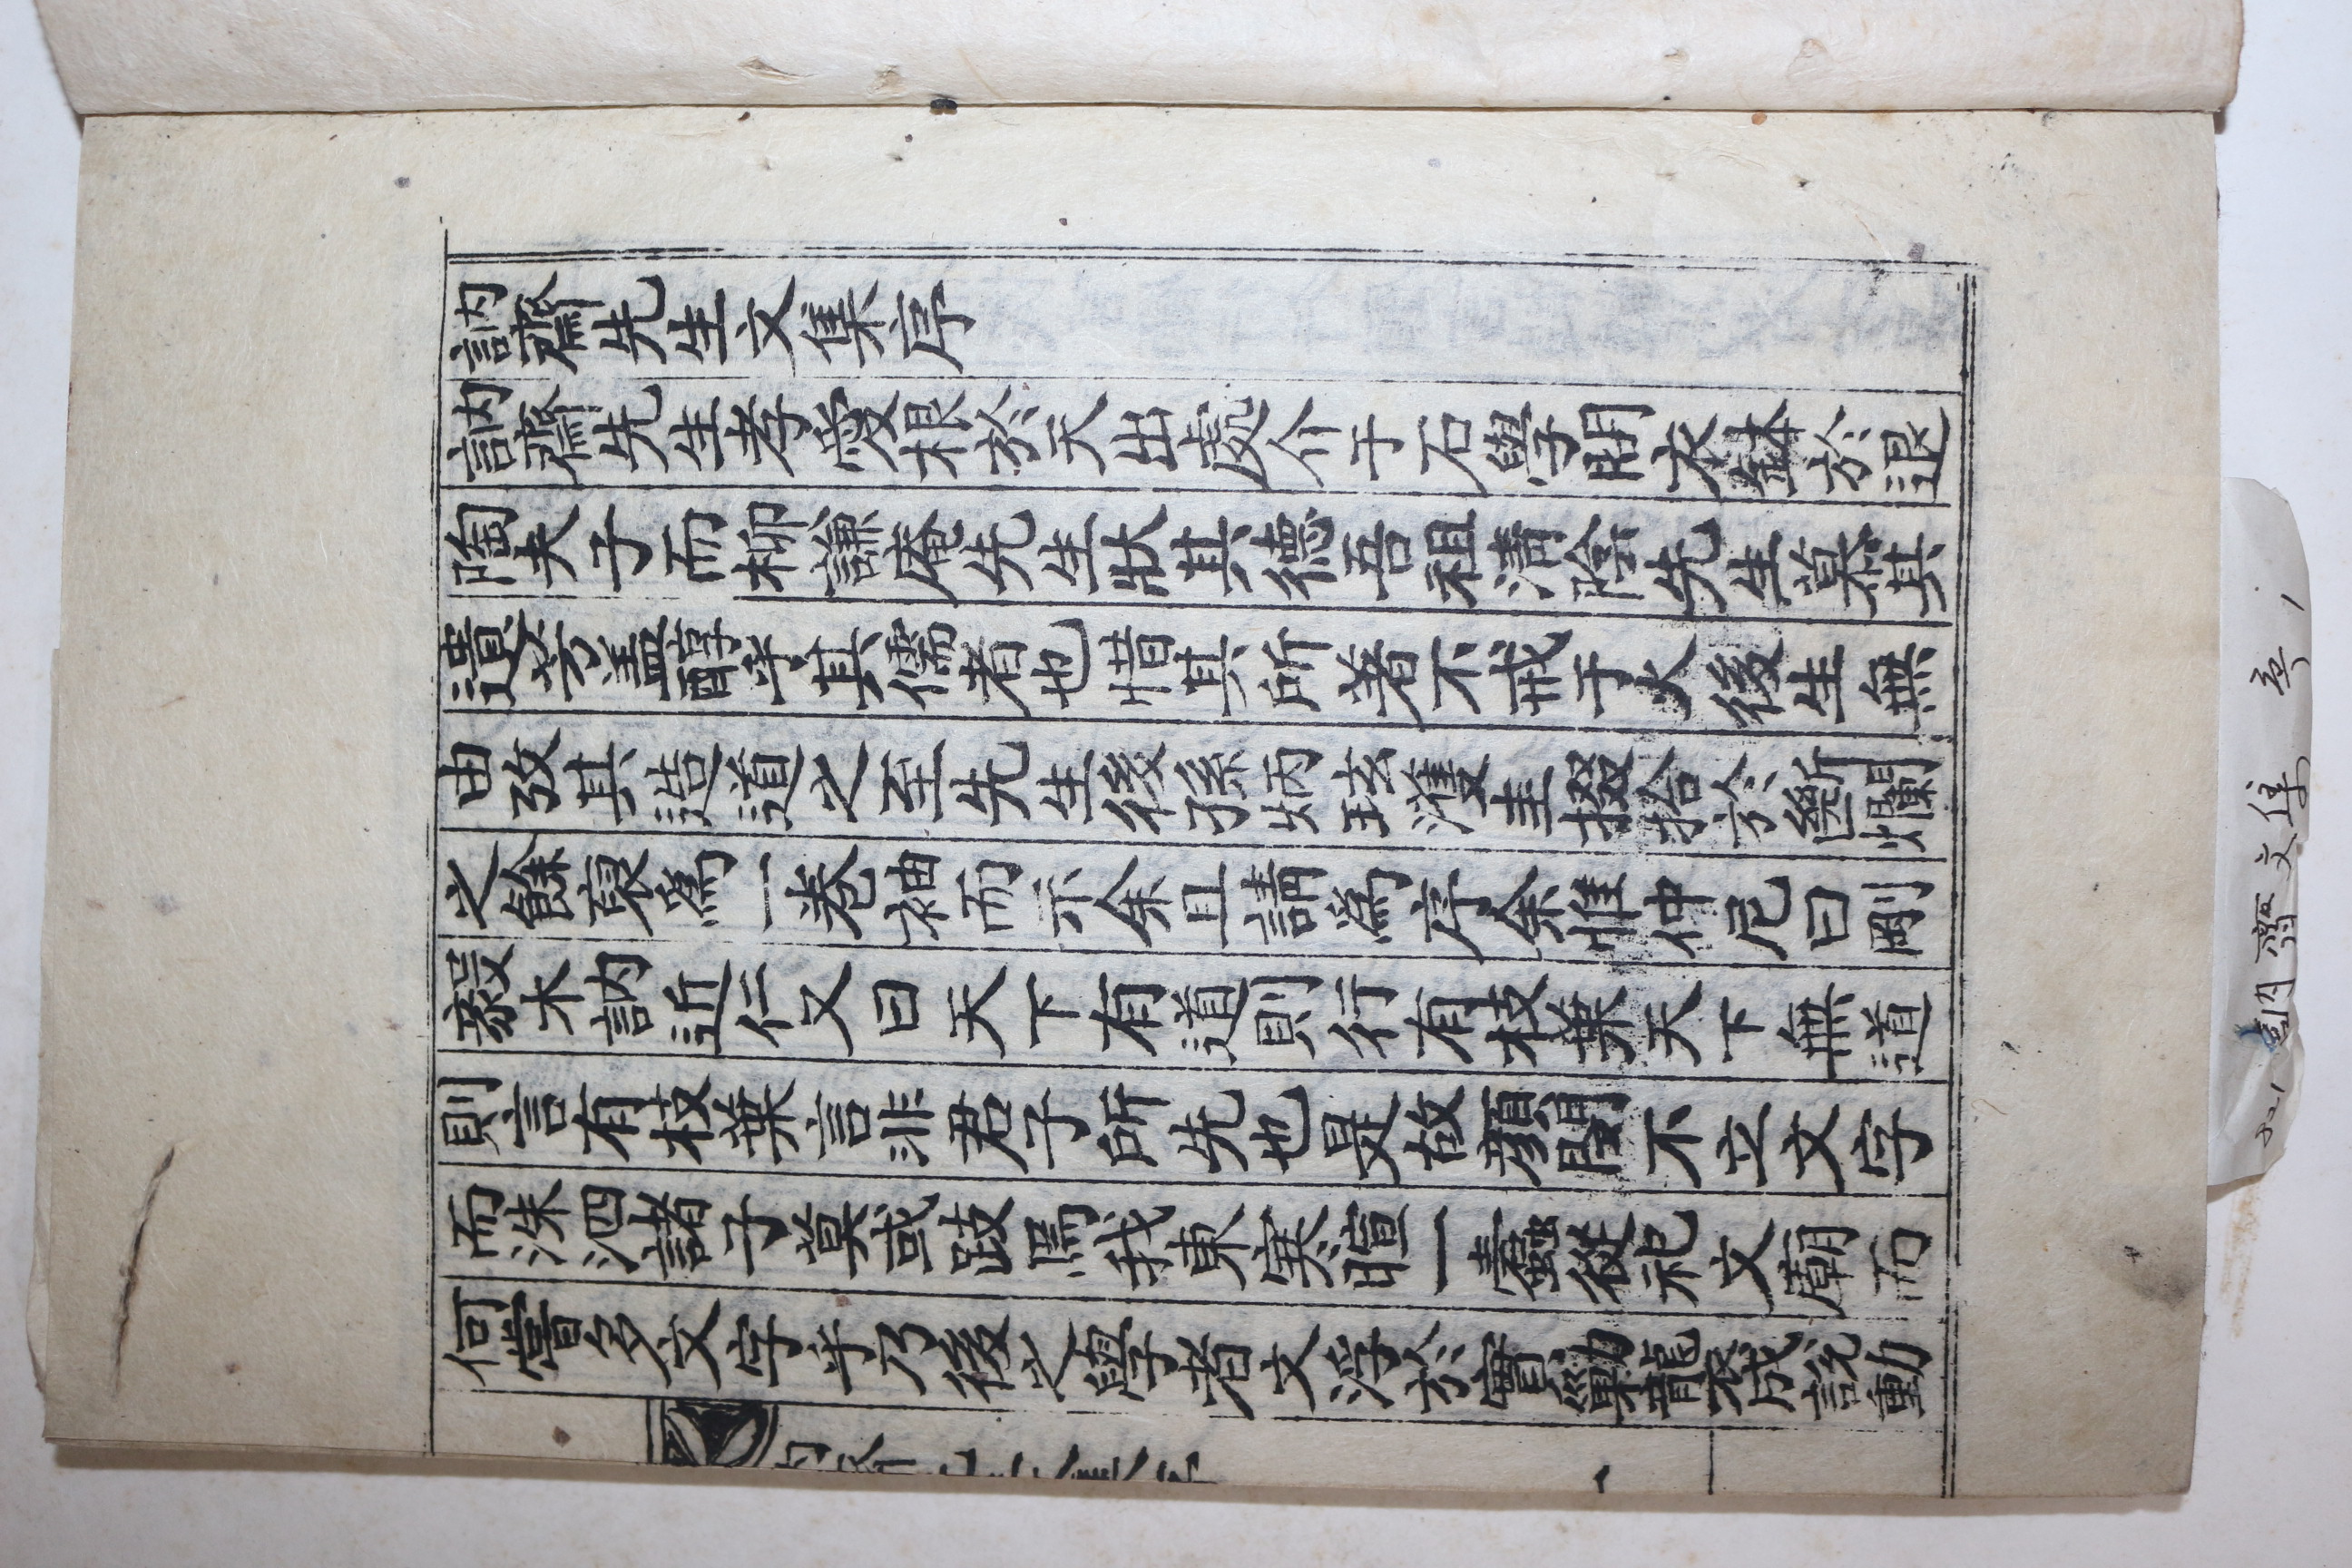 訥齋先生文集序
訥齋先生孝愛根於天出處介于石學問衣鉢於退
陶夫子而柳謙庵先生狀其德吾祖淸陰先生慕其
遺芳盖醇乎其儒者也惜其所著不戒于火後生無
由攷其造道之至先生後孫炳玹濩圭掇拾於斷爛
之餘裒爲一卷袖而示余且請爲序余惟仲尼曰剛
毅木訥近仁又曰天下有道則行有枝葉天下無道
則言有枝葉言非君子所先也是故顔閔不立文字
而洙泗諸子莫或跂焉我東寒暄一蠹從祀文廟而
何嘗多文字乎乃後之學者文浮於實勦龍衣成說動
821 訥齋文集 序 1